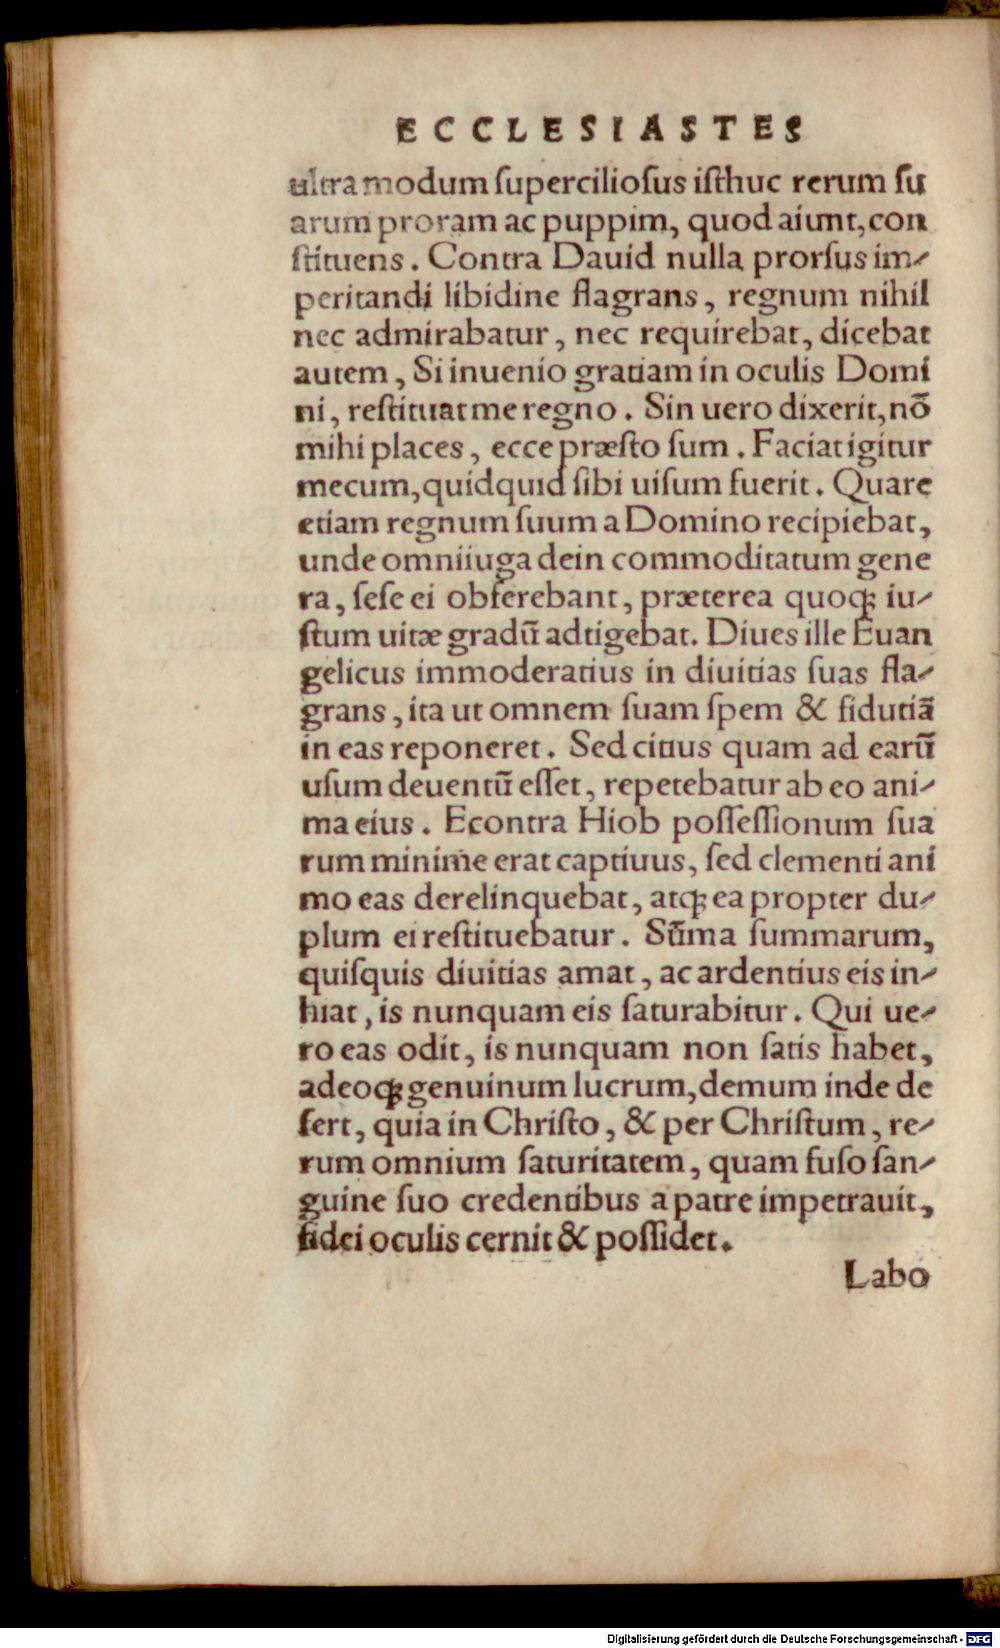 ECCLESIASTES
ultra modum ſuperciliosus iſthuc rerum ſu
arum proram ac puppim, quod aiunt, con
ſtituens. Contra Dauid nulla prorſus im-
peritandi libidine flagrans, regnum nihil
nec admirabatur, nec requirebat, dicebat
autem, Si inuenio gratiam in oculis Domi
ni, reſtituat me regno. Sin uero dixerit, nō
mihi places, ecce præſto ſum. Faciat igitur
mecum, quidquid ſibi uiſum fuerit. Quare
etiam regnum ſuum a Domino recipiebat,
unde omniiuga dein commoditatum gene
ra, ſeſe ei obferebant, præterea quoqꝫ iu-
ſtum uitæ gradū adtigebat. Diues ille Euan
gelicus immoderatius in diuitias ſuas fla-
grans, ita ut omnem ſuam ſpem & fidutiā
in eas reponeret. Sed citius quam ad earū
uſum deuentū eſſet, repetebatur ab eo ani-
ma eius. Econtra Hiob poſſeſſionum ſua
rum minime erat captiuus, ſed clementi ani
mo eas derelinquebat, atqꝫ ea propter du-
plum ei reſtituebatur. Sūma ſummarum,
quiſquis diuitias amat, ac ardentius eis in-
hiat, is nunquam eis ſaturabitur. Qui ue-
ro eas odit, is nunquam non ſatis habet,
adeoqꝫ genuinum lucrum, demum inde de
fert, quia in Chriſto, & per Chriſtum, re-
rum omnium ſaturitatem, quam fuſo ſan-
guine ſuo credentibus a patre impetrauit,
fidei oculis cernit & poſſidet.
Labo
Digitalisierung gefördert durch die Deutsche Forschungsgemeinschaft - DFG